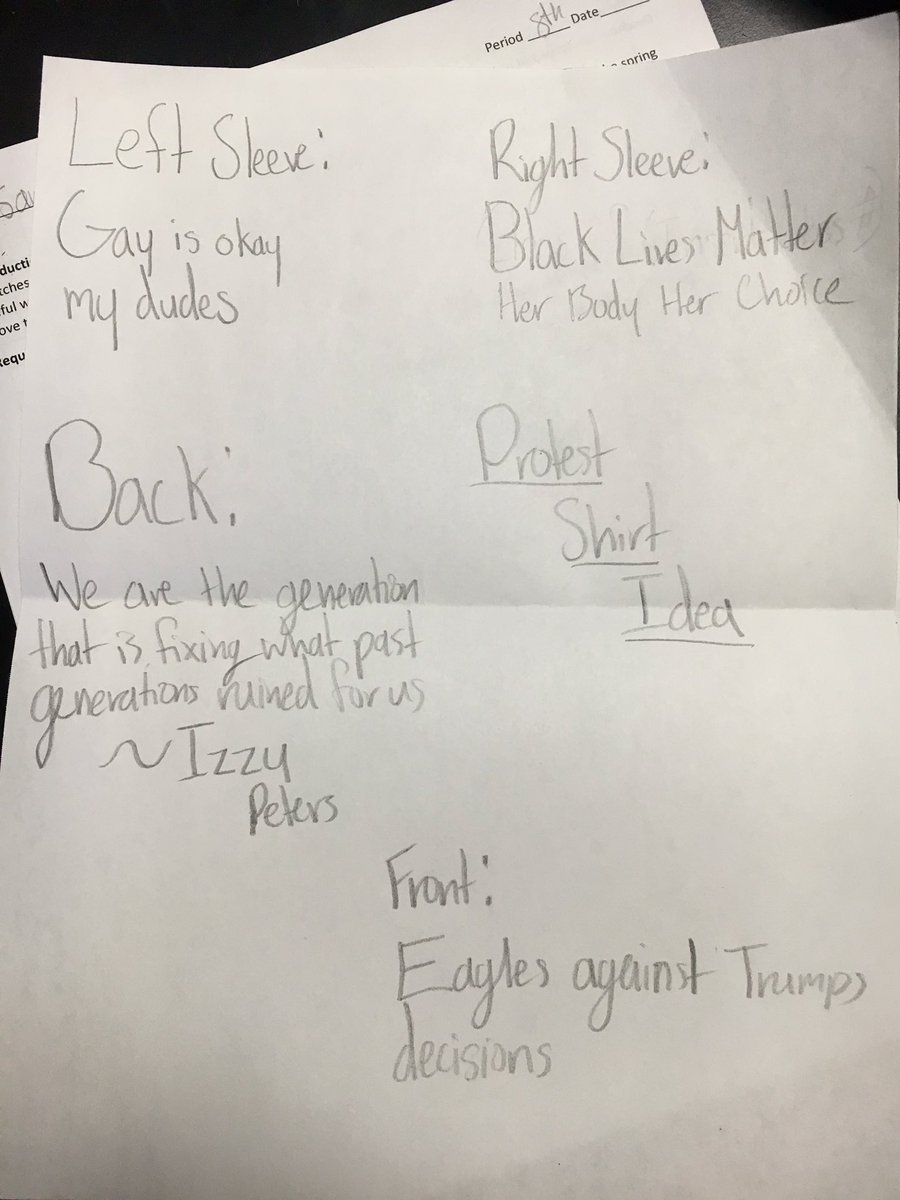 Period 8th Date
spring
Left Sleeve:
Gay is okay
my dudes
Right Sleeve:
Black Lives Matter
Her Body Her Choice
Protest
Shirt
Idea
Back:
We are the generation
that is fixing what past
generations ruined for us
~Izzy
Peters
Front:
Eagles against Trumps
decisions